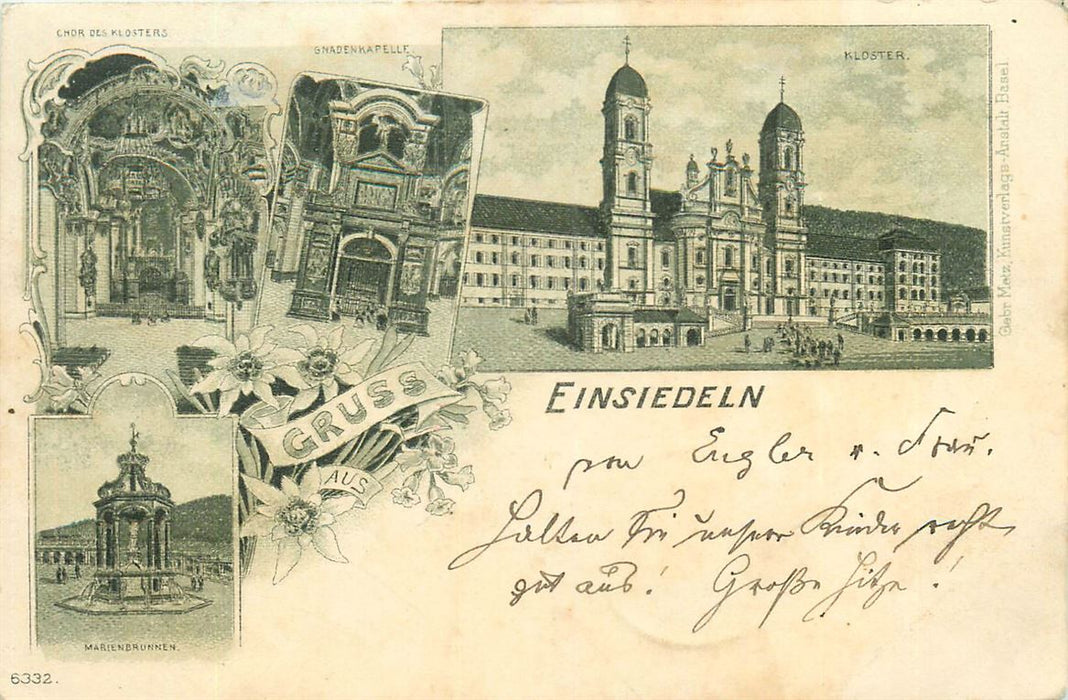 CHOR DES KLOSTERS.
GNADENKAPELLE.
KLOSTER.
Gebr. Metz, Kunstverlags-Anstalt Basel.
GRUSS
AUS
EINSIEDELN
von Engler u. Frau.
Halten Sie unsere Kinder recht
gut aus! Große Hitze!
MARIENBRUNNEN.
6332.